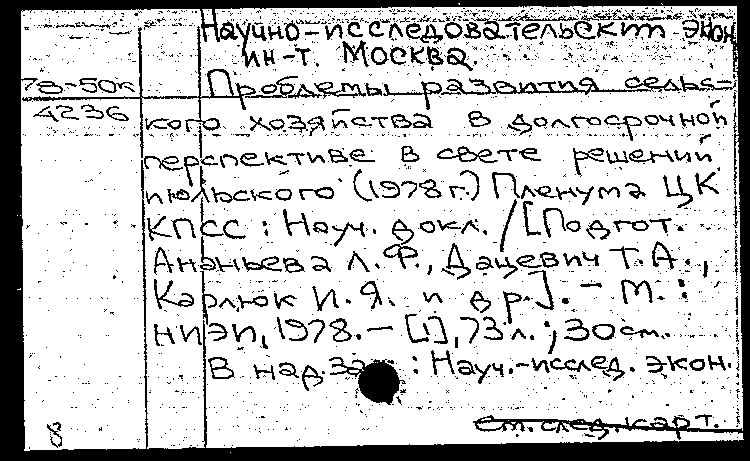 Научно-исследовательский экон.
ин-т. Москва.
78-50к Проблемы развития сельс-
4236 кого хозяйства в долгосрочной
перспективе в свете решений
июльского (1978 г.) Пленума ЦК
КПСС : Науч. докл. / [Подгот.
Ананьева Л.Ф., Дацевич Т.А.,
Карлюк И.Я. и др.]. - М. :
НИЭИ, 1978. - [1], 73 л. ; 30 см.
В над.заг : Науч.-исслед. экон.
см. след. карт.
8